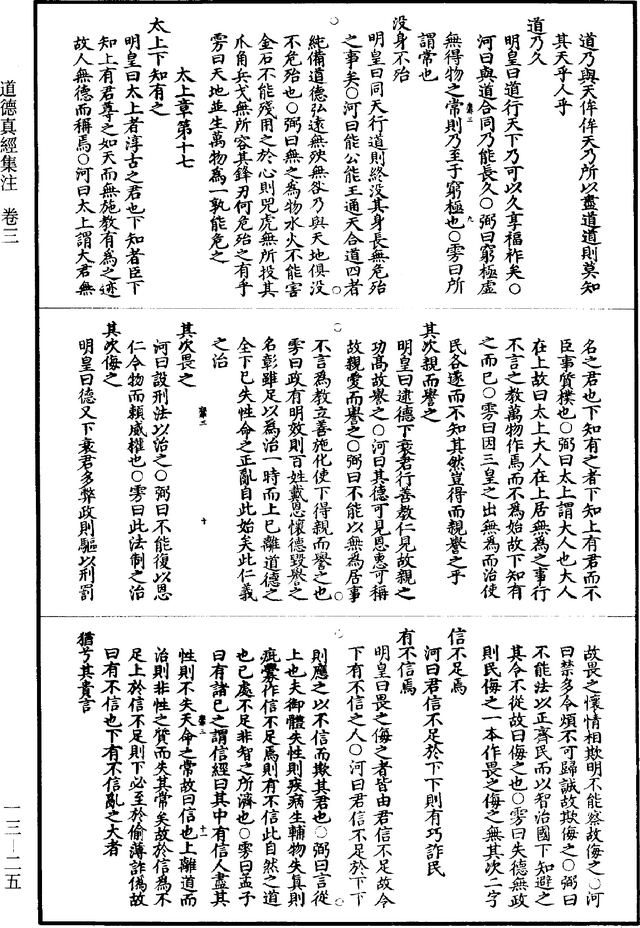 道乃與天侔侔天乃所以盡道道則莫知
其天乎人乎
道乃久
明皇曰道行天下乃可以久享福祚矣○
河曰與道合同乃能長久○弼曰窮極虛
無得物之常則乃至于窮極也○雱曰所
謂常也
没身不殆
明皇曰同天行道則終没其身長無危殆
之事矣○河曰能公能王通天合道四者
純備道德弘遠無殃無咎乃與天地俱没
不危殆也○弼曰無之為物水火不能害
金石不能殘用之於心則兕虎無所投其
爪角兵戈無所容其鋒刃何危殆之有乎
雱曰天地並生萬物為一孰能危之
太上章第十七
太上下知有之
明皇曰太上者淳古之君也下知者臣下
知上有君尊之如天而無施教有為之迹
故人無德而稱焉○河曰太上謂大君無
名之君也下知有之者下知上有君而不
臣事質樸也○弼曰太上謂大人也大人
在上故曰太上大人在上居無為之事行
不言之教萬物作焉而不為始故下知有
之而已○雱曰因三皇之出無為而治使
民各遂而不知其然豈得而親譽之乎
其次親而譽之
明皇曰逮德下衰君行善教仁見故親之
功高故譽之○河曰其德可見恩惠可稱
故親愛而譽之○弼曰不能以無為居事
不言為教立善施化使下得親而譽之也
雱曰政有明效則百姓戴恩懷德毀譽之
名彰雖足以為治一時而上已離道德之
全下已失性命之正亂自此始矣此仁義
之治
其次畏之
河曰設刑法以治之○弼曰不能復以恩
仁令物而賴威權也○雱曰此法制之治
其次侮之
明皇曰德又下衰君多弊政則驅以刑罰
故畏之懷情相欺明不能察故侮之○河
曰禁多令煩不可歸誠故欺侮之○弼曰
不能法以正齊民而以智治國下知避之
其令不從故曰侮之也○雱曰失德無政
則民侮之一本作畏之侮之無其次二字
信不足焉
河曰君信不足於下下則有巧詐民
有不信焉
明皇曰畏之侮之者皆由君信不足故令
下有不信之人○河曰君信不足於下下
則應之以不信而欺其君也○弼曰言從
上也夫御體失性則疾病生輔物失真則
疵釁作信不足焉則有不信此自然之道
也已處不足非智之所濟也○雱曰孟子
曰有諸已之謂信經曰其中有信人盡其
性則不失天命之常故曰信也上離道而
治則非性之質而失其常矣故於信為不
足上於信不足則下必至於偷薄詐偽故
曰有不信也下有不信亂之大者
猶兮其貴言
道德真經集注　卷三
一三—二五